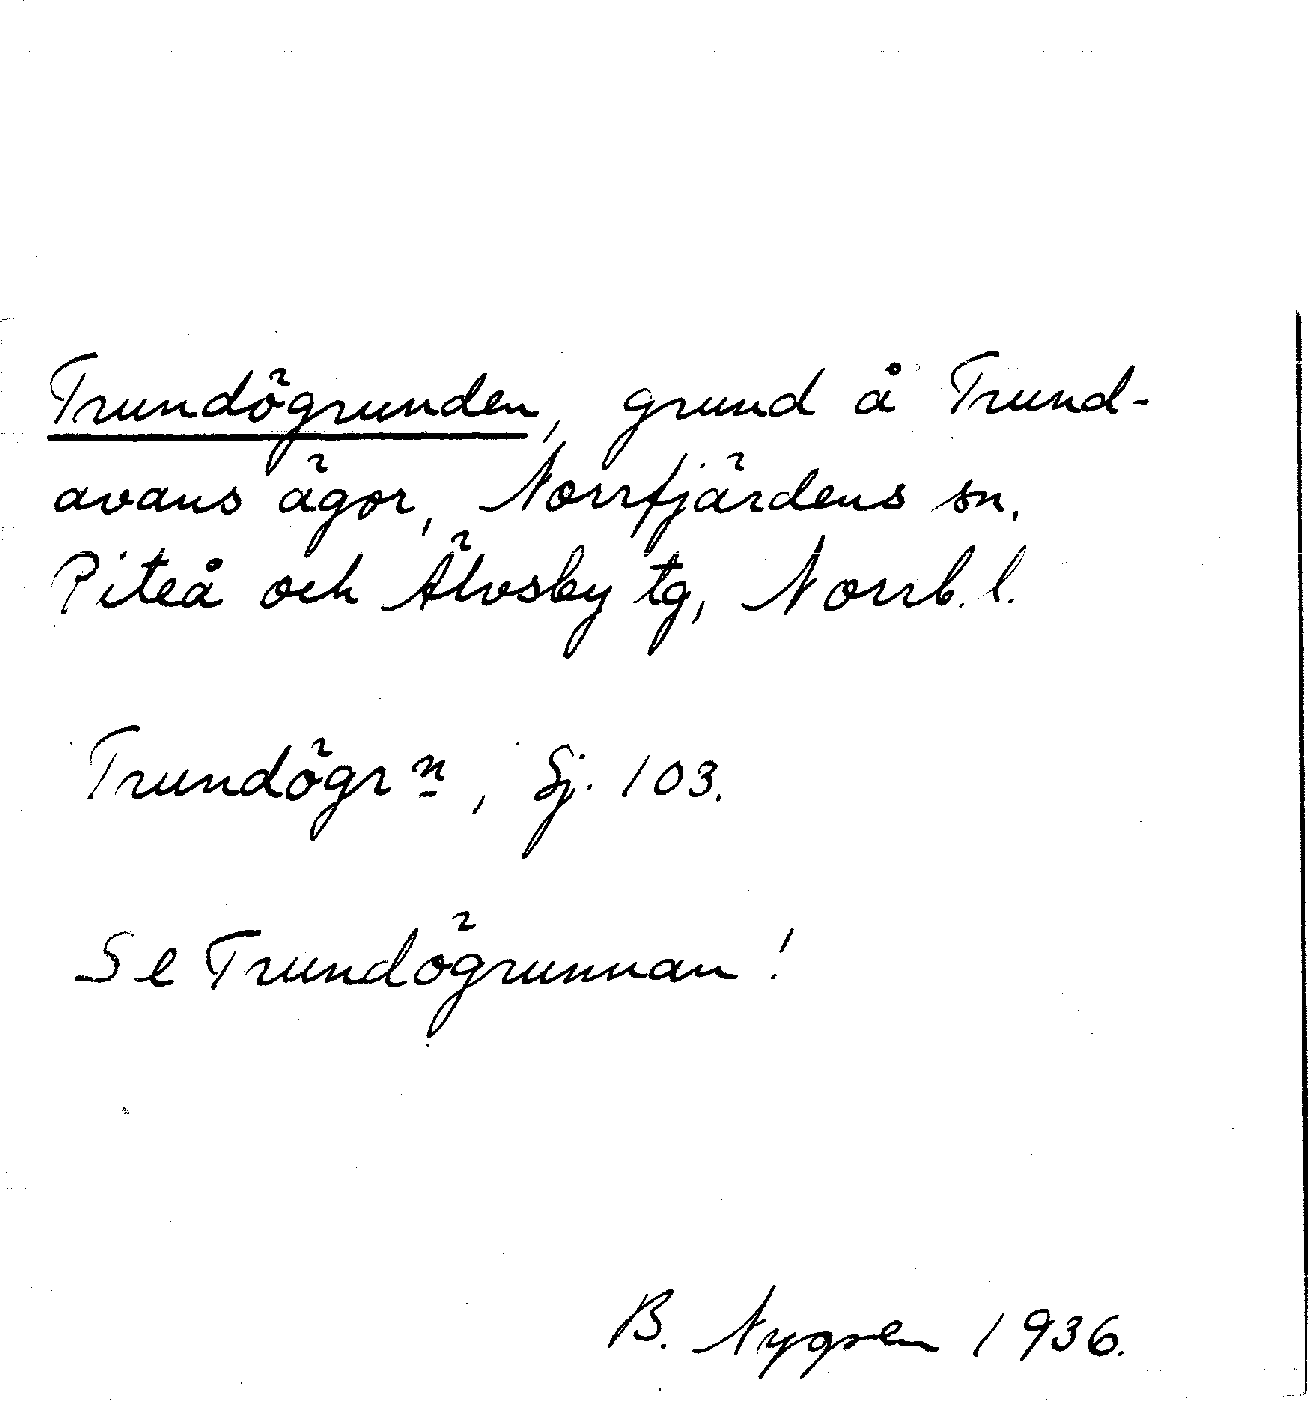 Trundögrunden, grund å Trund-
avans ägor, Norrfjärdens sn.
Piteå och Älvsby tg, Norrb. l.
Trundögrn, Sj. 103.
Se Trundögrunnan!
B. Nygren 1936.